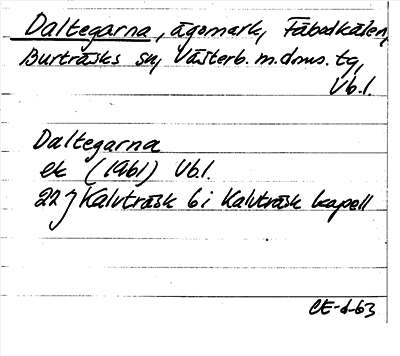 Daltegarna, ägomark, Fäbodkälen,
Burträsks sn, Västerb. m. dms. tg,
Vb.l.
Daltegarna
ek (1961) Vb.l.
22 J Kalvträsk 6 i Kalvträsk kapell
CE-d-63